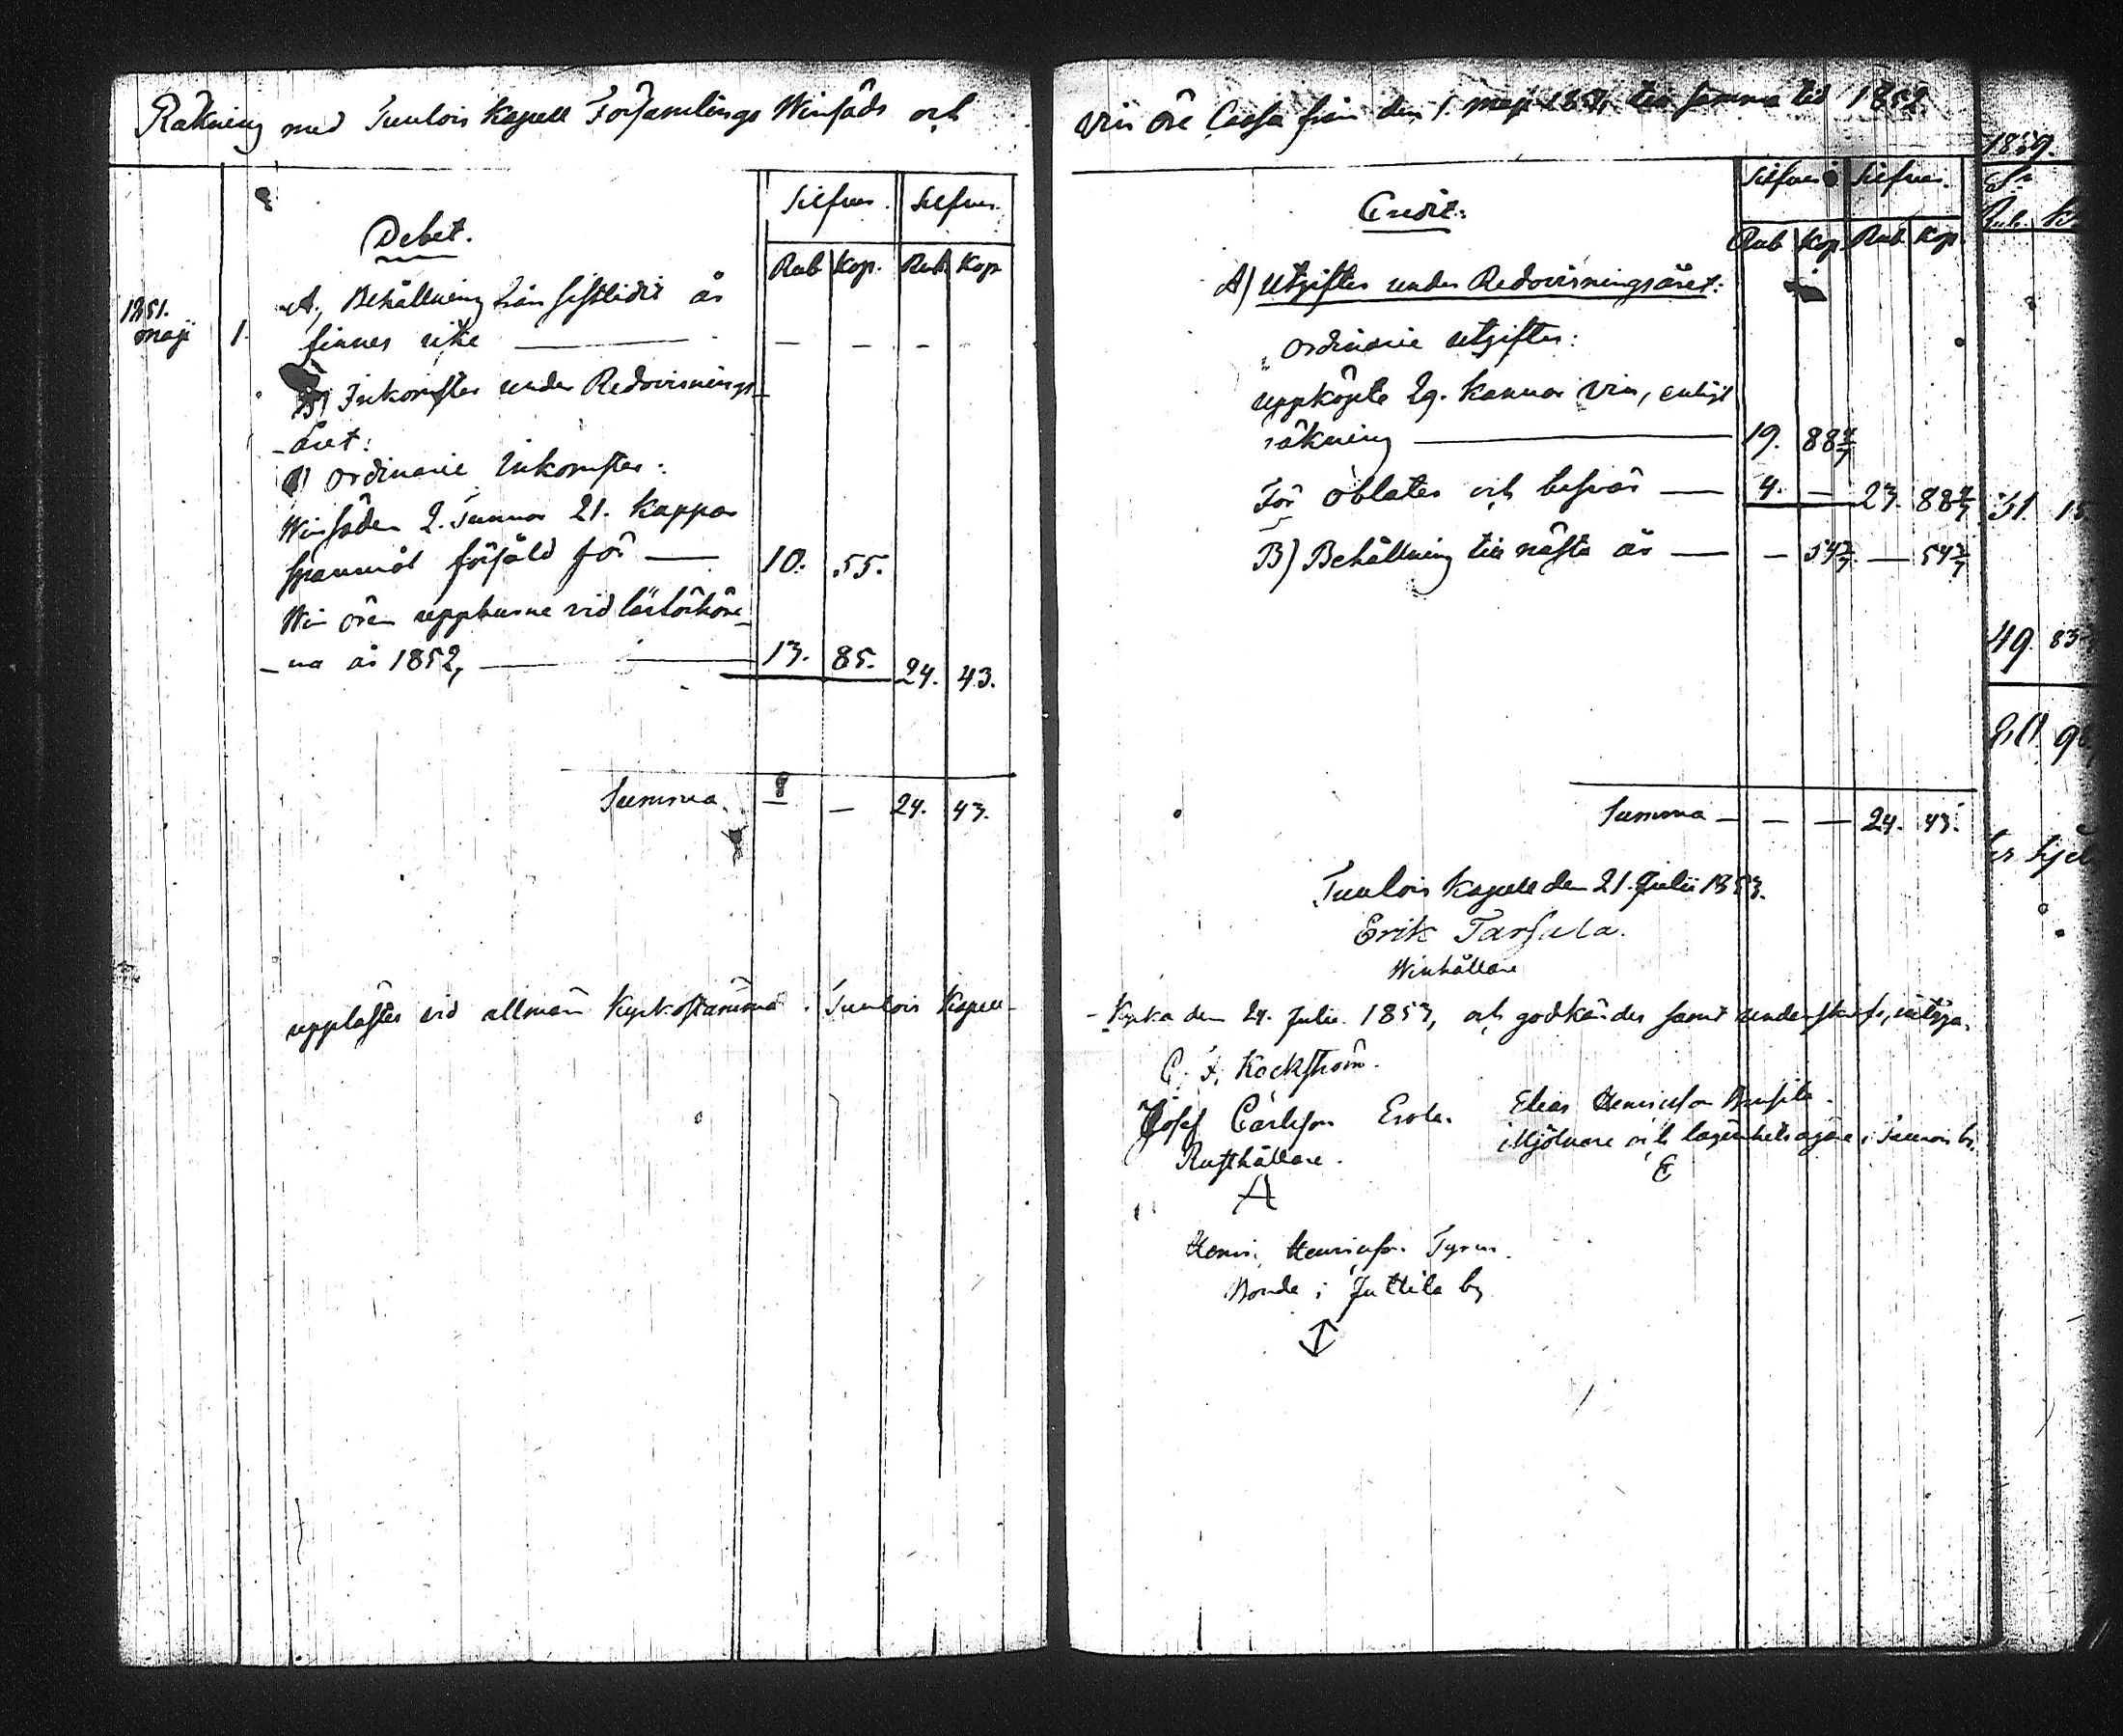 Räkning med Tuulois Kapell Församlings Winsäds och
Debet.
Silfver. Silfver.
Rub Kop. Rub. Kop
1851.
maji 1. A, Behållning från sistlidit år
finnes icke — — — — —
B) Inkomster under Redovisnings-
-året:
a) ordinarie Inkomster:
Winsäden 2. Tunnor 21. Kappar
spannmål försåld för — 10. 55.
Win ören uppburne vid läsförhöre-
-na år 1852, — 13. 85. 24. 43.
Summa. — — 24. 43.
upplästes vid allmän Kyrkostämma i Tuulois Kapell-
vin öre Cassa från den 1. maji 1851, till samma tid 1852
Credit:
Silfver Silfver.
Rub Kop. Rub. Kop.
A) Utgifter under Redovisningsåret:
ordinarie utgifter:
uppköpte 29. Kannor Vin, enligt
räkning — 19. 88 4/7
För oblater och besvär — 4. — 23. 88 4/7
B) Behållning till nästa år — — 54 3/7 — 54 3/7
Summa — — — 24. 43.
Tuulois Kapell den 21. Julii 1853.
Erik Tarsala.
Winhållare
-Kyrka den 24. Julii 1853, och godkändes samt underskrifs, intyga.
C. F. Kockström.
Josef Carlsson Erola.
Rusthållare.
A
Elias Henricsson
Mjölnare och lägenhetsägare i
E
Henric Henricsson
Bonde i Juttila by
1859.
Rub. K
31. 15
49. 83